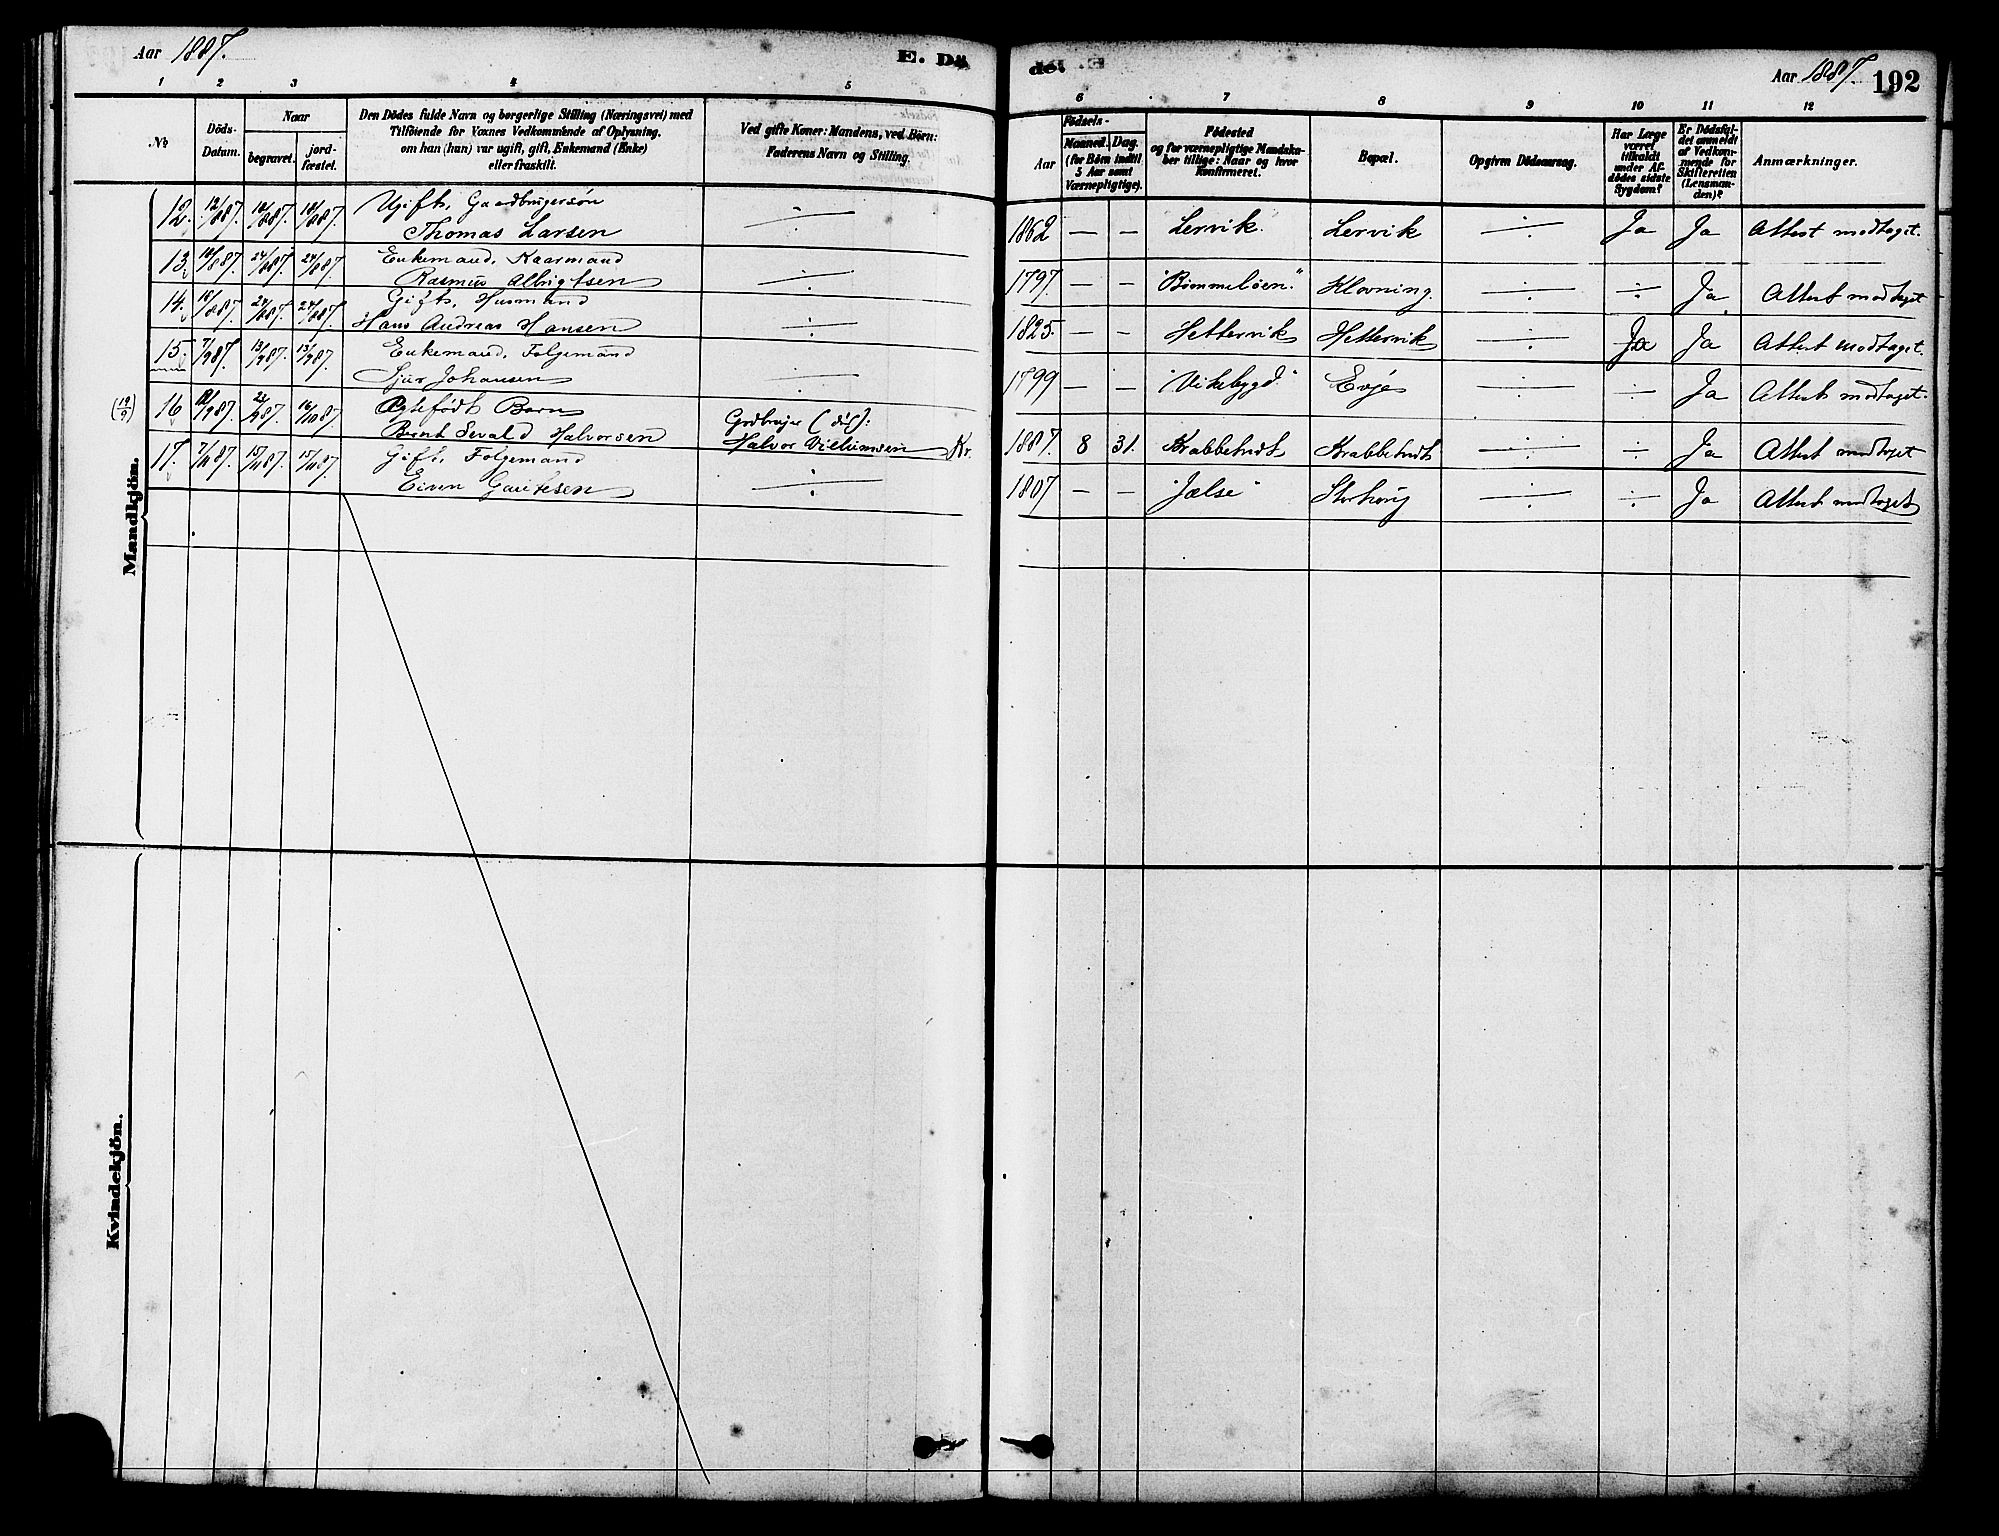 Aar 1887.
E. Dö
de. E
Aar 1887. 192
1 2 3 4 5 6 7 8 9 10 11 12
No
Döds-
Datum.
Naar
begravet.
jord-
fæstet.
Den Dödes fulde Navn og borgerlige Stilling (Næringsvei) med
Tilföiende for Voxnes Vedkommende af Oplysning.
om han (hun) var ugift, gift, Enkemand (Enke)
eller fraskilt.
Ved gifte Koner: Mandens, ved Börn:
Faderens Navn og Stilling.
Födsels-
Aar
Maaned. Dag.
(for Börn indtil
5 Aar samt
Værnepligtige).
Födested
og for værnepligtige Mandska-
ber tillige: Naar og hvor
konfirmeret.
Bopæl.
Opgiven Dödsaarsag.
Har Læge
været
tilkaldt
under Af-
dödes sidste
Sygdom?
Er Dödsfal-
det anmeldt
af Vedkom-
mende for
Skifteretten
(Lensman-
den)?
Anmærkninger.
Mandkjön.
12. 12/887. 18/887. 18/887. Ugift, Gaardbrugersøn
Thomas Larsen ÷ 1862 — — Lervik. Lervik ÷ Ja Ja Attest modtaget.
13. 18/887. 24/887. 24/887. Enkemand, Kaarmand
Rasmus Albrigtsen ÷ 1797. — — "Bömmelöen." Klovning. ÷ ÷ Ja Attest modtaget
14. 18/887. 24/887. 24/887. Gift, Husmand
Hans Andreas Hansen ÷ 1825. — — Hettervik Hettervik ÷ Ja Ja Attest modtaget.
15. 7/987. 13/987. 13/987. Enkemand, Folgemand
Sjur Johansen ÷ 1799 — — "Vikebygd." Evje ÷ ÷ Ja Attest modtaget.
(19/9) 16 /987. 23/987. 16/1087. Ægtefödt Barn
Bernt Sevald Halvorsen
Gdbruger (död):
Halvor Villumsen Kr. 1887. 8 31. Krabbetudt Krabbetudt ÷ ÷ Ja Attest modtaget
17. 7/1187. 15/1187. 15/1187. Gift, Folgemand
Eivin Gautesen ÷ 1807 — — "Jælse" Storhoug ÷ ÷ Ja Attest modtaget
Kvindekjön.